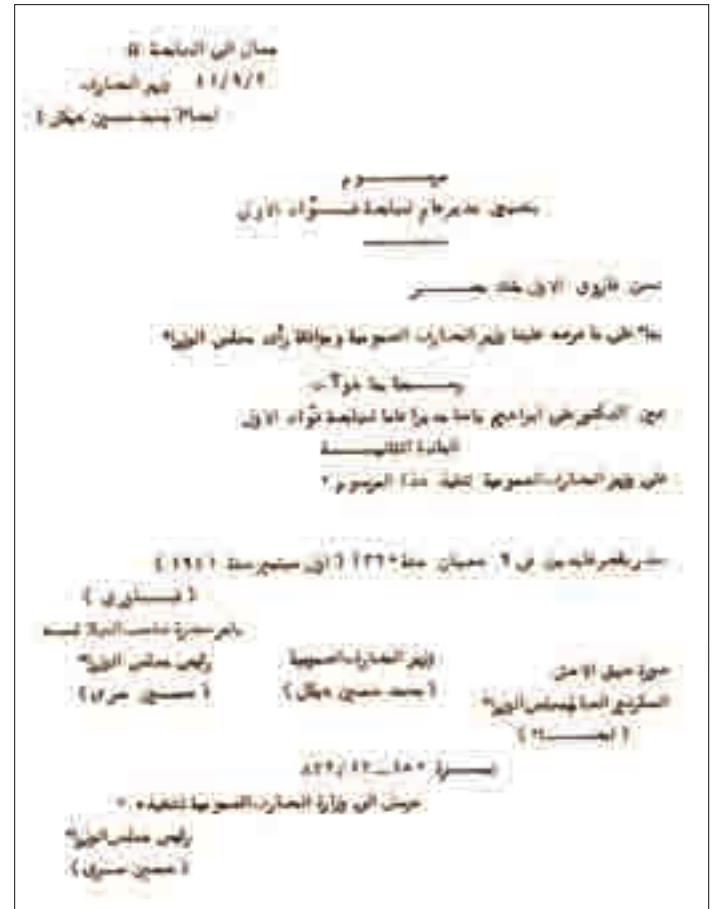 محال الى الجامعة
وزير المعارف
امضاء محمد حسين هيكل )
مرســــــوم
بتعيين مدير عام لجامعة فـــؤاد الاول
نحن فاروق الاول ملك مصــــر
بناء على ما عرضه علينا وزير المعارف العمومية وموافقة رأى مجلس الوزراء
رســـمنا بما هو آت
عين الدكتور على ابراهيم باشا مديرا عاما لجامعة فؤاد الاول
المادة الثانيـــــة
على وزير المعارف العمومية تنفيذ هذا المرسوم
صدر بقصر عابدين فى ٩ شعبان سنة ١٣٦٠ ( اول سبتمبر سنة ١٩٤١ )
( فـــاروق )
بامر حضرة صاحب الجلالـــة
رئيس مجلس الوزراء
( حســـين سرى )
وزير المعارف العمومية
( محمد حسين هيكل )
صورة طبق الاصل
السكرتير العام لمجلس الوزراء
( امضـــاء )
نمـــرة
مرسل الى وزارة المعارف العمومية لتنفيذه
رئيس مجلس الوزراء
( حسين ســـرى )